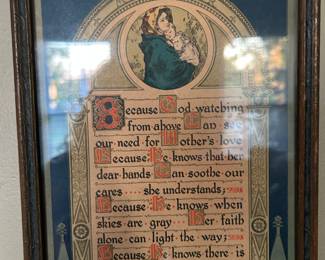 Because God watching
from above Can see
our need for Mother's love
Because He knows that her
dear hands Can soothe our
cares .... she understands;
Because He knows when
skies are gray ... Her faith
alone can light the way;
Because He knows there is